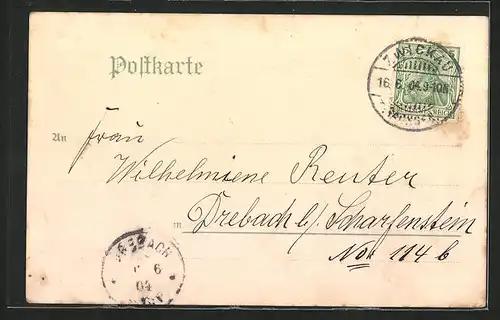 Postkarte
ZWICKAU
16.6.04.9-10N.
An Frau
Wilhelmiene Reuter
in Drebach b/ Scharfenstein
No 114 b
DREBACH
6
04